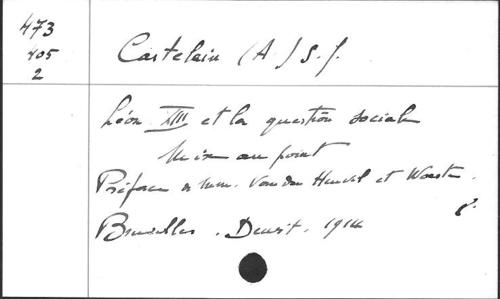 473
405
2
Castelein (A) S.J.
Léon XIII et la question sociale
Mise au point
Préface de MM. Van den Heuvel et Woeste.
8°
Bruxelles. Dewit. 1914